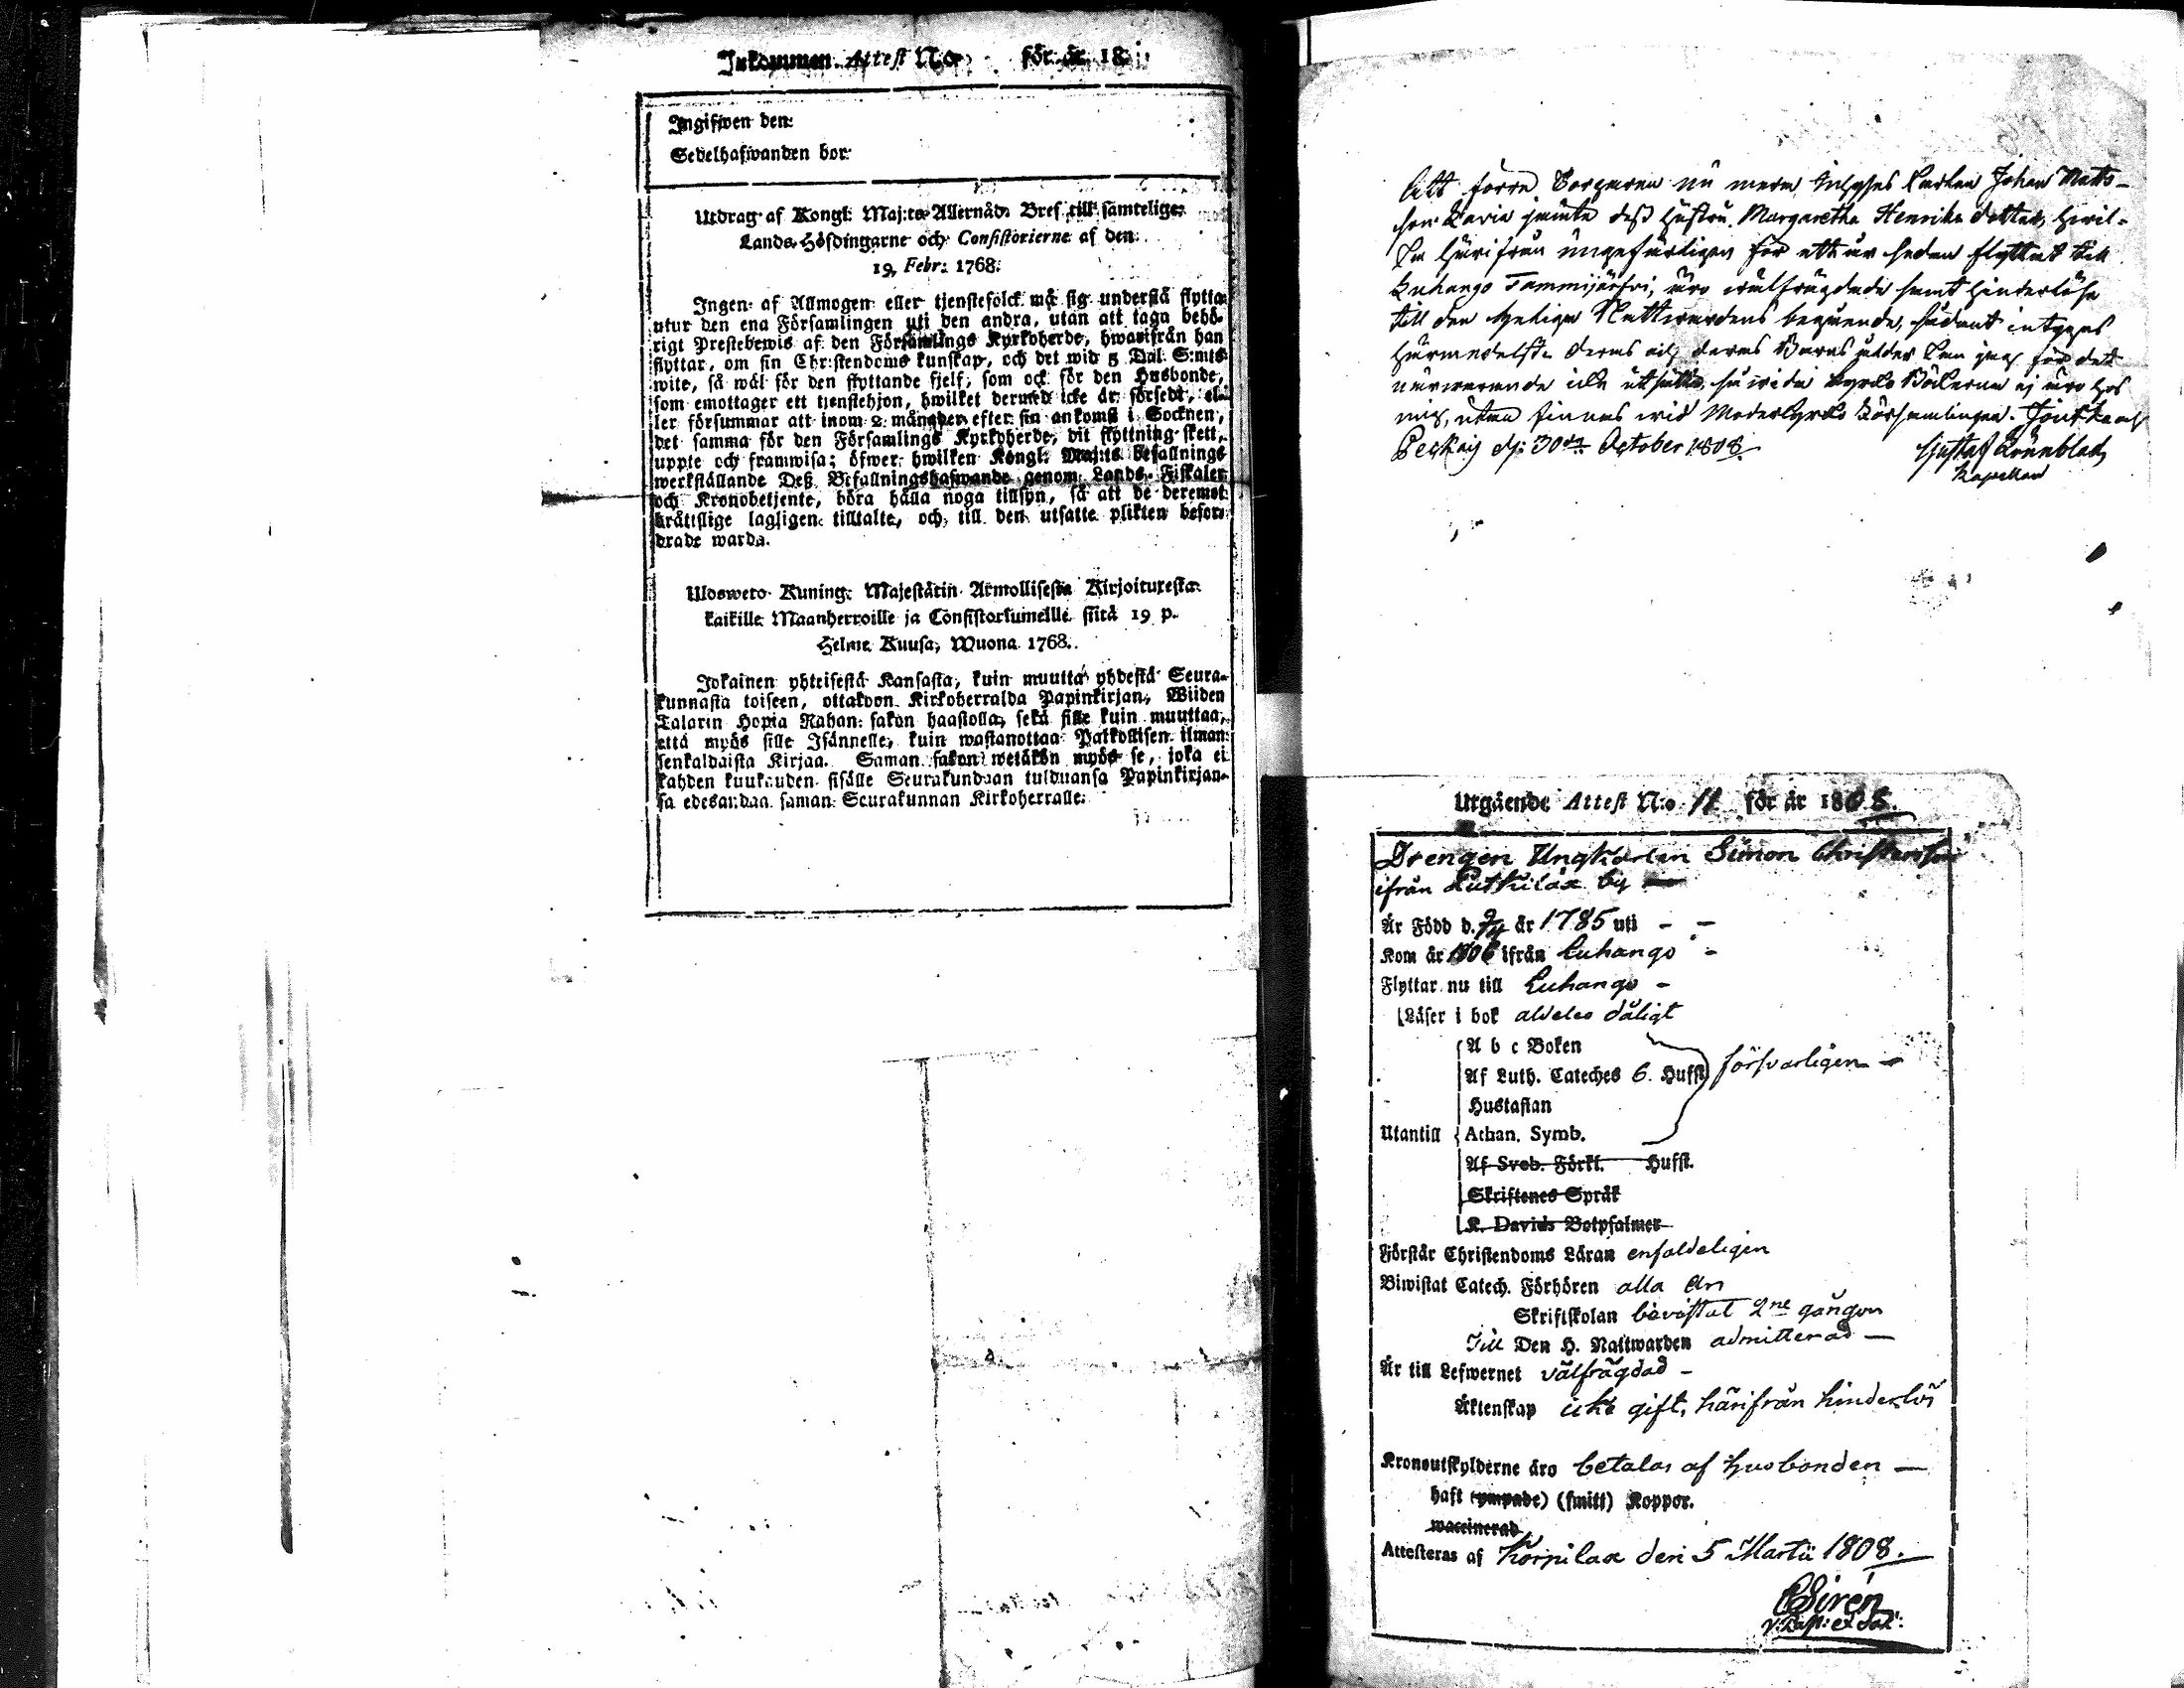 Inkommen Attest N:o för år 18
Ingifwen den:
Sedelhafwanden bor:
Utdrag af Kongl: Maj:ts Allernåd: Bref till samtelige
Lands-Höfdingarne och Consistorierne af den
19 Febr: 1768.
Ingen af Allmogen eller tjenstefolck må sig understå flytta
utur den ena Församlingen uti den andra, utan att taga behö-
rigt Prestebewis af den Församlings Kyrkoherde, hwarifrån han
flyttar, om sin Christendoms kunskap, och det wid 5 Dal: S:mts
wite, så wäl för den flyttande sjelf, som ock för den Husbonde,
som emottager ett tjenstehjon, hwilket dermed icke är försedt, el-
ler försummar att inom 2 månader efter sin ankomst i Socknen,
det samma för den Församlings Kyrkoherde, dit flyttning skett,
uppte och framwisa; öfwer hwilken Kongl: Maj:ts befallnings
werkställande Deß Befallningshafwande genom Lands-Fiskaler
och Kronobetjente, böra hålla noga tillsyn, så att de deremot
bråttslige lagligen tilltalte, och till den utsatte plikten befor-
drade warda.
Ulosweto Kuning: Majestätin Armollisesta Kirjoituxesta
kaikille Maanherroille ja Consistoriumeille siitä 19 p.
Helme Kuusa, Wuona 1768.
Jokainen yhteisestä Kansasta, kuin muutta yhdestä Seura-
kunnasta toiseen, ottakoon Kirkoherralda Papinkirjan, Wiiden
Talarin Hopia Rahan sakon haastolla, sekä sille kuin muuttaa,
että myös sille Isännelle, kuin wastanottaa Palkollisen ilman
senkaldaista Kirjaa. Saman sakon wetäkön myös se, joka ei
kahden kuukauden sisälle Seurakundaan tulduansa Papinkirjan-
sa edesandaa saman Seurakunnan Kirkoherralle.
Att förre Torparen nu mera Inhyses Karlen Johan Matts-
son Lavia jämte deß Hustru Margaretha Henriks dotter, hwil-
ka härifrån ungefärligen för ett år sedan flyttat till
Luhango Tammijärfvi, äro wälfrägdade samt hinderlöse
till den helige Nattwardens begående, sådant intygas
härmedelst. Deras och deras Barns ålder kan jag för det
närwarande icke utsätta, så wida Kyrko Böckerna ej äro hos
mig, utan finnas wid Moderkyrko Församlingen. Joutsa och
d: 30de October 1808.
Gustaf
Kapellan
Utgående Attest N:o 11 för år 1808.
Drengen Ungkarlen Simon Christersson
ifrån Putkilax by
Är Född d. 9/4 år 1785 uti - -
Kom år 1806 ifrån Luhango -
Flyttar nu till Luhango -
Läser i bok aldeles dåligt
A b c Boken
Af Luth. Cateches 6. Hufst. försvarligen -
Hustaflan
Utantill Athan. Symb.
Af Sveb. Förkl. Hufst.
Skriftenes Språk
K. Davids Botpsalmer
Förstår Christendoms Läran enfaldeligen
Biwistat Catech. Förhören alla år
Skriftskolan bevistat 2ne gångor
Till Den H. Nattwarden admitterad -
Är till Lefwernet välfrägdad -
Äktenskap icke gift, härifrån hinderlös
Kronoutskylderne äro betalas af Husbonden -
haft (ympade) (smitt) Koppor.
waccinerad
Attesteras af Korpilax den 5 Martii 1808.
Sirén